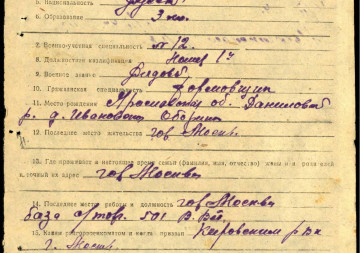 5. Национальность русск.
6. Образование 3 кл.
7. Военно-учетная специальность № 12
8. Должностная квалификация Номер 1й
9. Военное звание Рядовой
10. Гражданская специальность формовщик
11. Место рождения Ярославской об. Даниловск
р. д. Ивановск
12. Последнее место жительства гор Москва
13. Где проживает в настоящее время семья (фамилия, имя, отчество) жены или родителей
и точный их адрес
гор Москва
14. Последнее место работы и должность гор Москва
база 501
15. Каким райвоенкоматом и когда призван Кировским рвк
г. Москв.